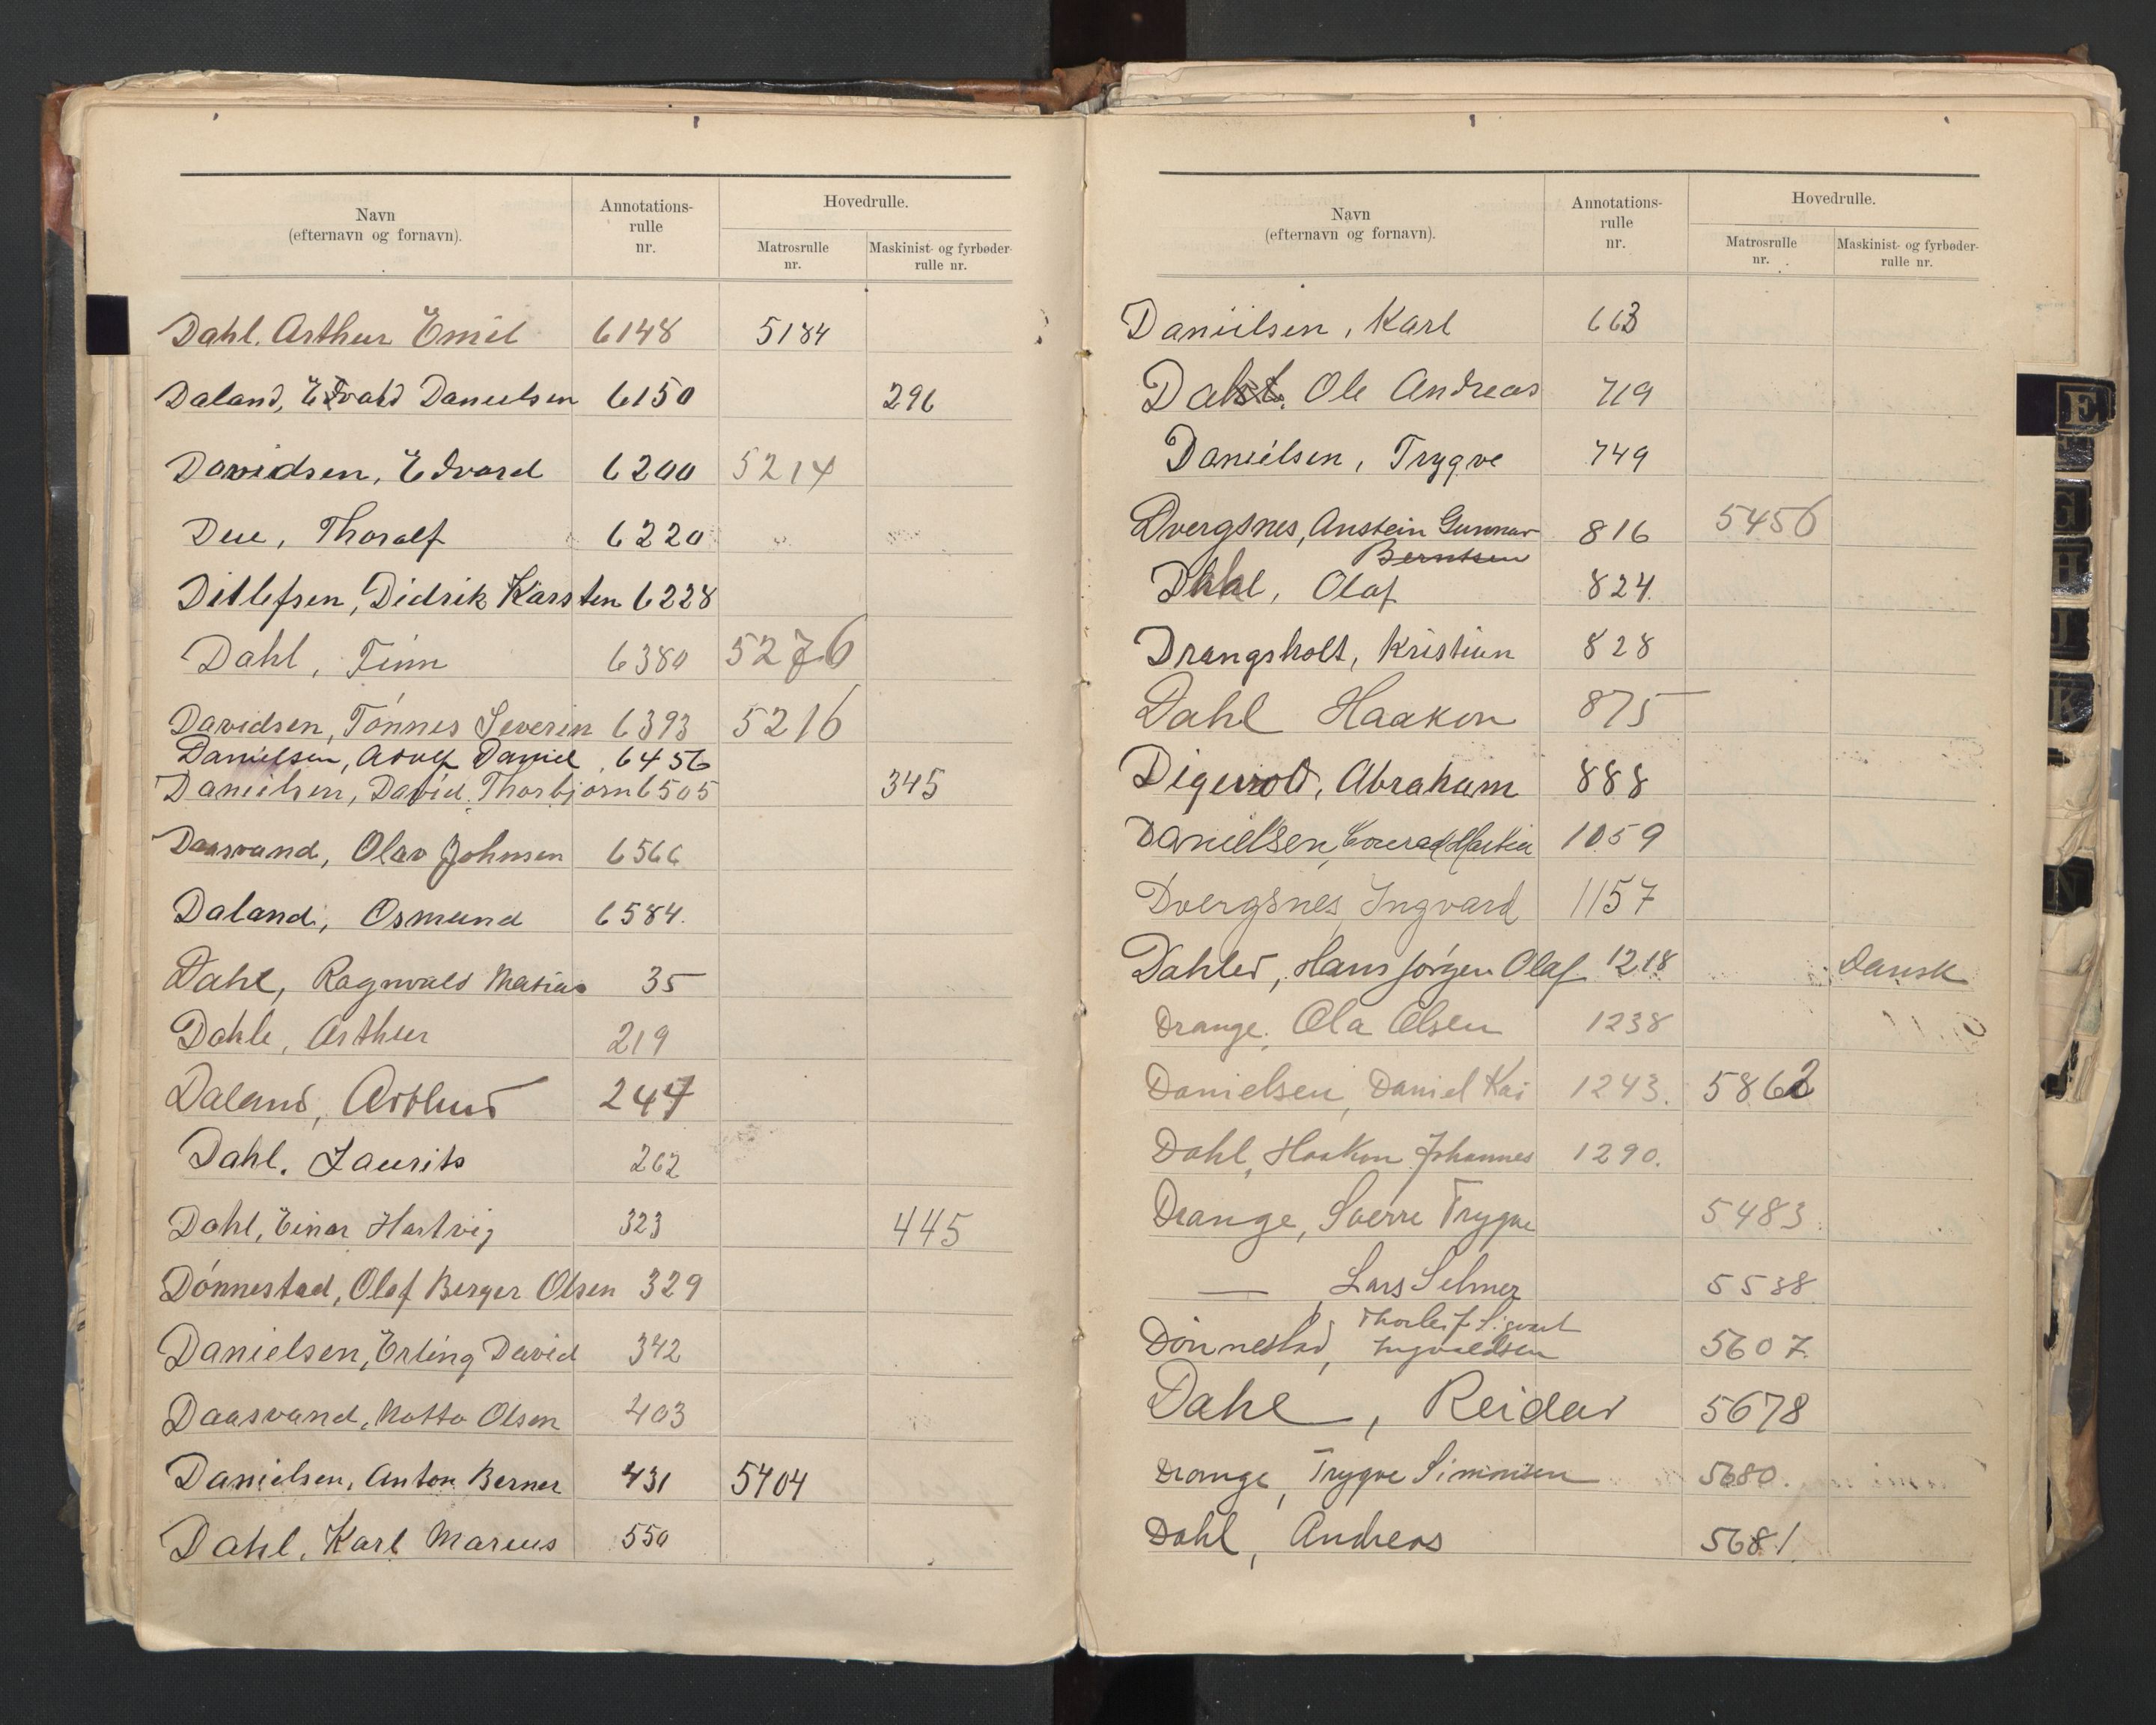 Navn
(efternavn og fornavn).
Annotations-
rulle
nr.
Hovedrulle.
Matrosrulle
nr.
Maskinist- og fyrbøder-
rulle nr.
Dahl, Arthur Emil 6148 5184
Daland, Edvald Danielsen 6150 296
Davidsen, Edvard 6200 5214
Due, Thoralf 6220
Ditlefsen, Didrik Karsten 6228
Dahl, Finn 6380 5276
Davidsen, Tønnes Severin 6393 5216
Danielsen, Adolf Daniel 6456
Danielsen, David Thorbjørn 6505 345
Daasvand, Olav Johnsen 6566
Daland, Osmund 6584.
Dahl, Ragnvald Matias 35
Dahle, Arthur 219
Daland, 247
Dahl, Laurits 262
Dahl, Einar Hartvig 323 445
Dønnestad, Olaf Berger Olsen 329
Danielsen, Erling David 342
Daasvand, Notto Olsen 403
Danielsen, Anton Berner 431 5404
Dahl, Karl Marius 550
Navn
(efternavn og fornavn).
Annotations-
rulle
nr.
Hovedrulle.
Matrosrulle
nr.
Maskinist- og fyrbøder-
rulle nr.
Danielsen, Karl 663
Ole Andreas 719
Danielsen, Trygve 749
Dvergsnes, Anstein Gunnar 816 5456
Berntsen
Dahl, Olaf 824.
Drangsholt, Kristian 828
Dahl Haakon 875
Digervold, Abraham 888
Danielsen, Conrad Martin 1059
Dvergsnes, Ingvard 1157
Dahler, Hans Jørgen Olaf 1218 Dansk
Drange, Ola Olsen 1238
Danielsen, Daniel Kai 1243. 5862
Dahl, Haakon Johannes 1290.
Drange, Sverre Trygve 5483
— Lars Selmer 5538
Thorleif Sigvart
Dønnestad, Ingvaldsen 5607.
Dahl, Reidar 5678
Drange, Trygve Simonsen 5680.
Dahl, Andreas 5681.
E
G
H
J
K
N